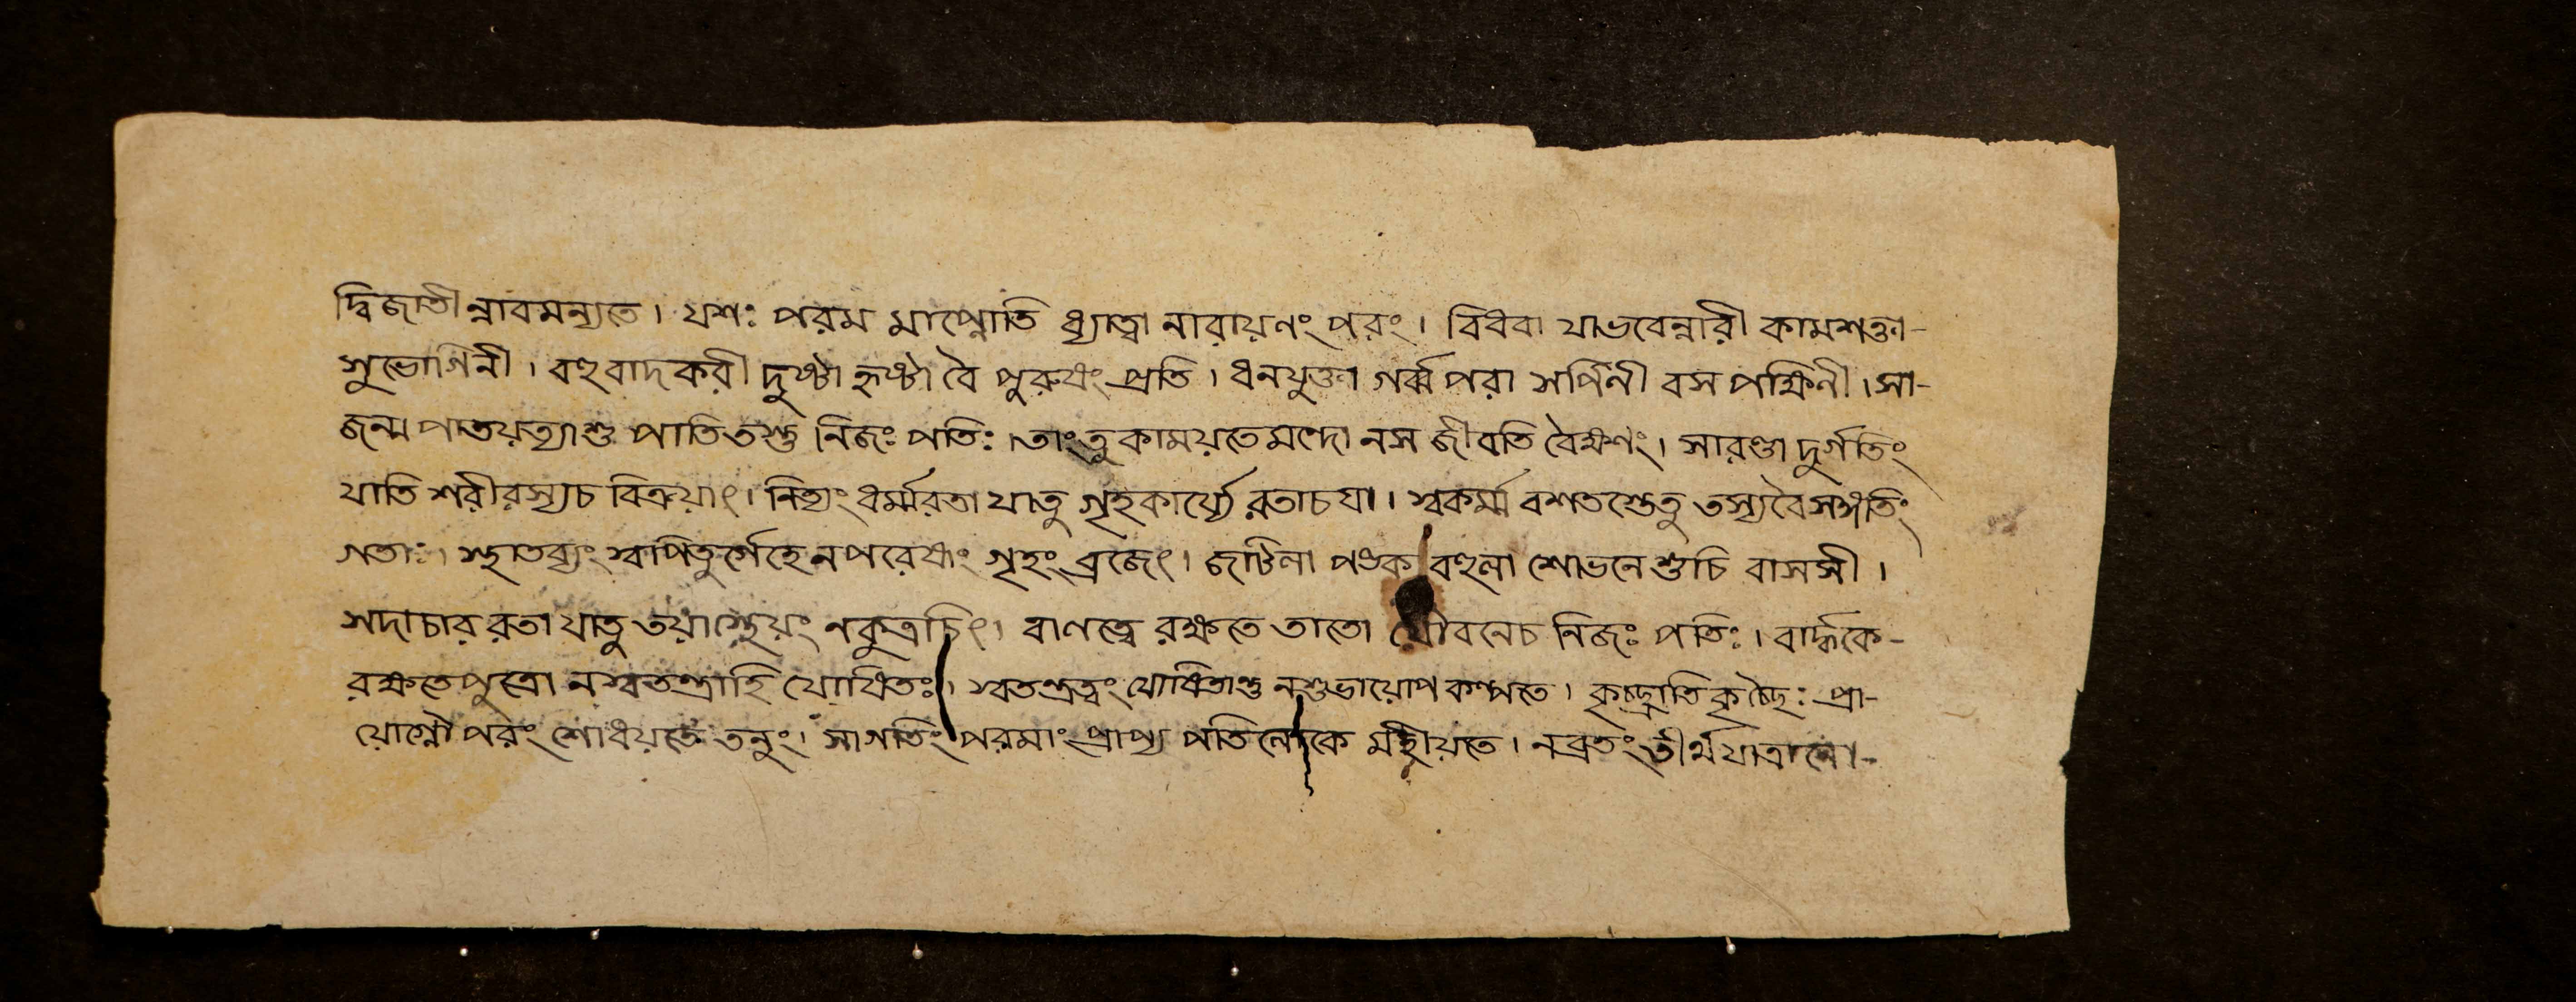 দ্বিজাতীন্নাবমন্যতে। যশঃ পরম মাপ্নোতি ধ্যাত্বা নারায়ণং পরং। বিধবা যাভবেন্নারী কামশক্তা-
সুভোগিনী। বহুবাদকরী দুষ্টা হৃষ্টা বৈ পুরুষং প্রতি। ধনযুক্তা গর্ব্বপরা সর্পিনী বস পক্ষিনী। সা-
জন্ম পাতয়ত্যাশু পাতিতস্তু নিজঃ পতিঃ। তাংতু কাময়তেমন্দো নস জীবতি বৈক্ষণং। সারণ্ডা দুর্গতিং
যাতি শরীরস্যচ বিক্রয়াৎ। নিত্যং ধর্ম্মরতা যাতু গৃহকার্য্যে রতাচযা। স্বকর্ম্ম বশতস্তেতু তস্যবৈসঙ্গতিং
গতাঃ। স্থাতব্যং স্বাপিতুর্গেহে নপরেষাং গৃহং ব্রজেৎ। জটিলা পঙ্ক বহুলা শোভনে শুচি বাসসী।
সদাচার রতা যাতু তয়াস্থেয়ং নকুত্রচিৎ। বাণত্বে রক্ষতে তাতো যৌবনেচ নিজঃ পতিঃ। বার্দ্ধকে-
রক্ষতে পুত্রো নস্বতন্ত্রাহি যোষিতঃ। স্বতন্ত্রত্বং যোষিতাস্তু নশুভায়োপ কল্পতে। কৃচ্ছ্রাতি কৃচ্ছ্রৈঃ প্রা-
য়োগ্নৌ পরং শোধয়তে তনুং। সাগতিং পরমাং প্রাপ্য পতিলোকে মহীয়তে। নব্রতং তীর্থযাত্রানো-